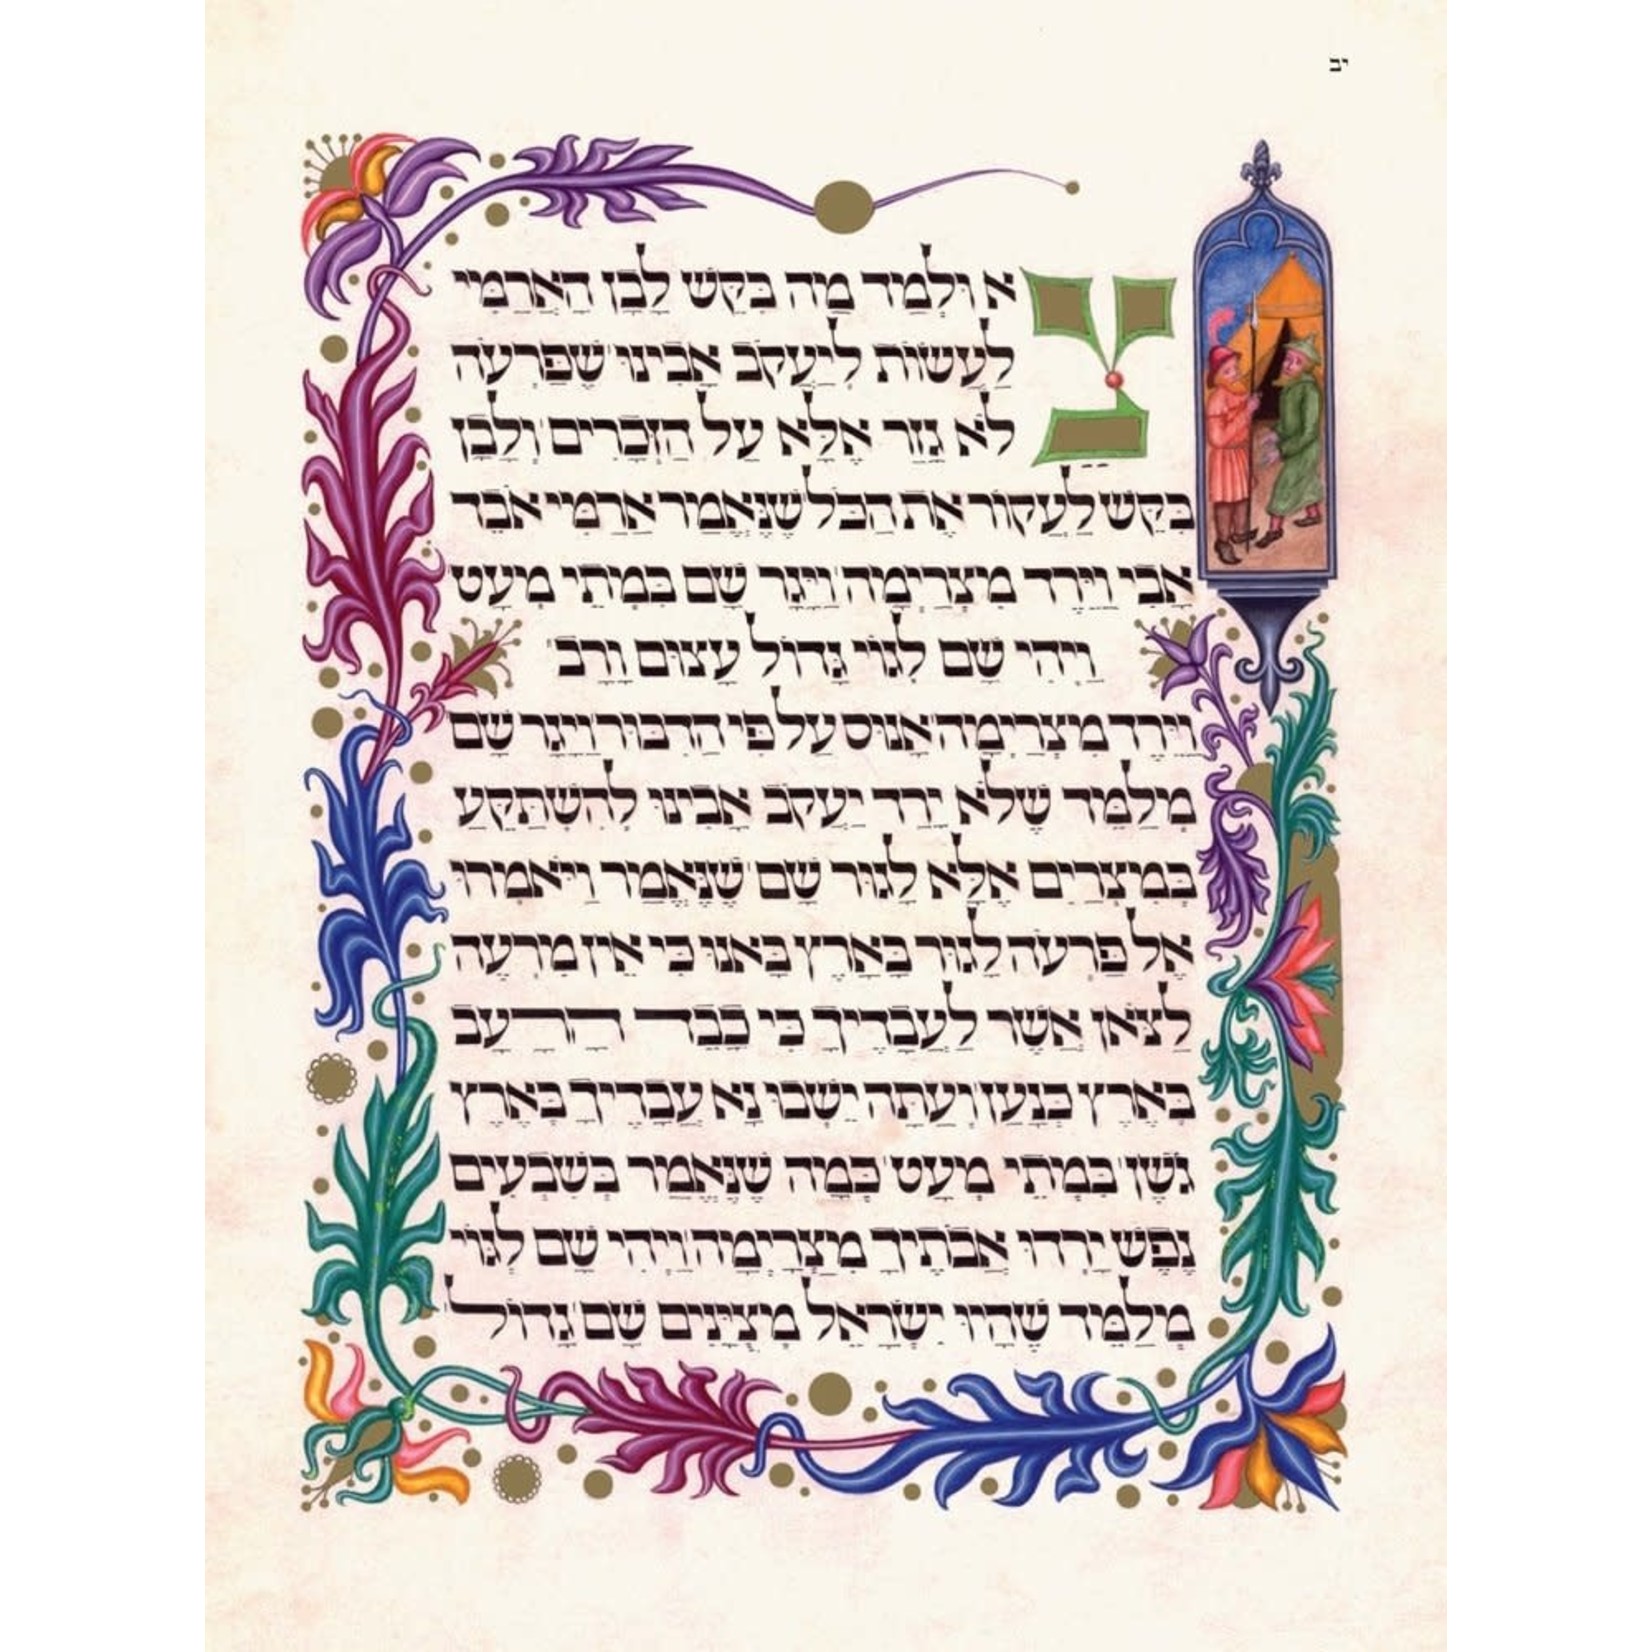 יב
צֵא וּלְמַד מַה בִּקֵּשׁ לָבָן הָאֲרַמִּי
לַעֲשׂוֹת לְיַעֲקֹב אָבִינוּ שֶׁפַּרְעֹה
לֹא גָזַר אֶלָּא עַל הַזְּכָרִים וְלָבָן
בִּקֵּשׁ לַעֲקוֹר אֶת הַכֹּל שֶׁנֶּאֱמַר אֲרַמִּי אֹבֵד
אָבִי וַיֵּרֶד מִצְרַיְמָה וַיָּגָר שָׁם בִּמְתֵי מְעָט
וַיְהִי שָׁם לְגוֹי גָּדוֹל עָצוּם וָרָב
וַיֵּרֶד מִצְרַיְמָה אָנוּס עַל פִּי הַדִּבּוּר וַיָּגָר שָׁם
מְלַמֵּד שֶׁלֹּא יָרַד יַעֲקֹב אָבִינוּ לְהִשְׁתַּקֵּעַ
בְּמִצְרַיִם אֶלָּא לָגוּר שָׁם שֶׁנֶּאֱמַר וַיֹּאמְרוּ
אֶל פַּרְעֹה לָגוּר בָּאָרֶץ בָּאנוּ כִּי אֵין מִרְעֶה
לַצֹּאן אֲשֶׁר לַעֲבָדֶיךָ כִּי כָבֵד הָרָעָב
בְּאֶרֶץ כְּנָעַן וְעַתָּה יֵשְׁבוּ נָא עֲבָדֶיךָ בְּאֶרֶץ
גֹּשֶׁן בִּמְתֵי מְעָט כְּמָה שֶׁנֶּאֱמַר בְּשִׁבְעִים
נֶפֶשׁ יָרְדוּ אֲבֹתֶיךָ מִצְרָיְמָה וַיְהִי שָׁם לְגוֹי
מְלַמֵּד שֶׁהָיוּ יִשְׂרָאֵל מְצֻיָּנִים שָׁם גָּדוֹל